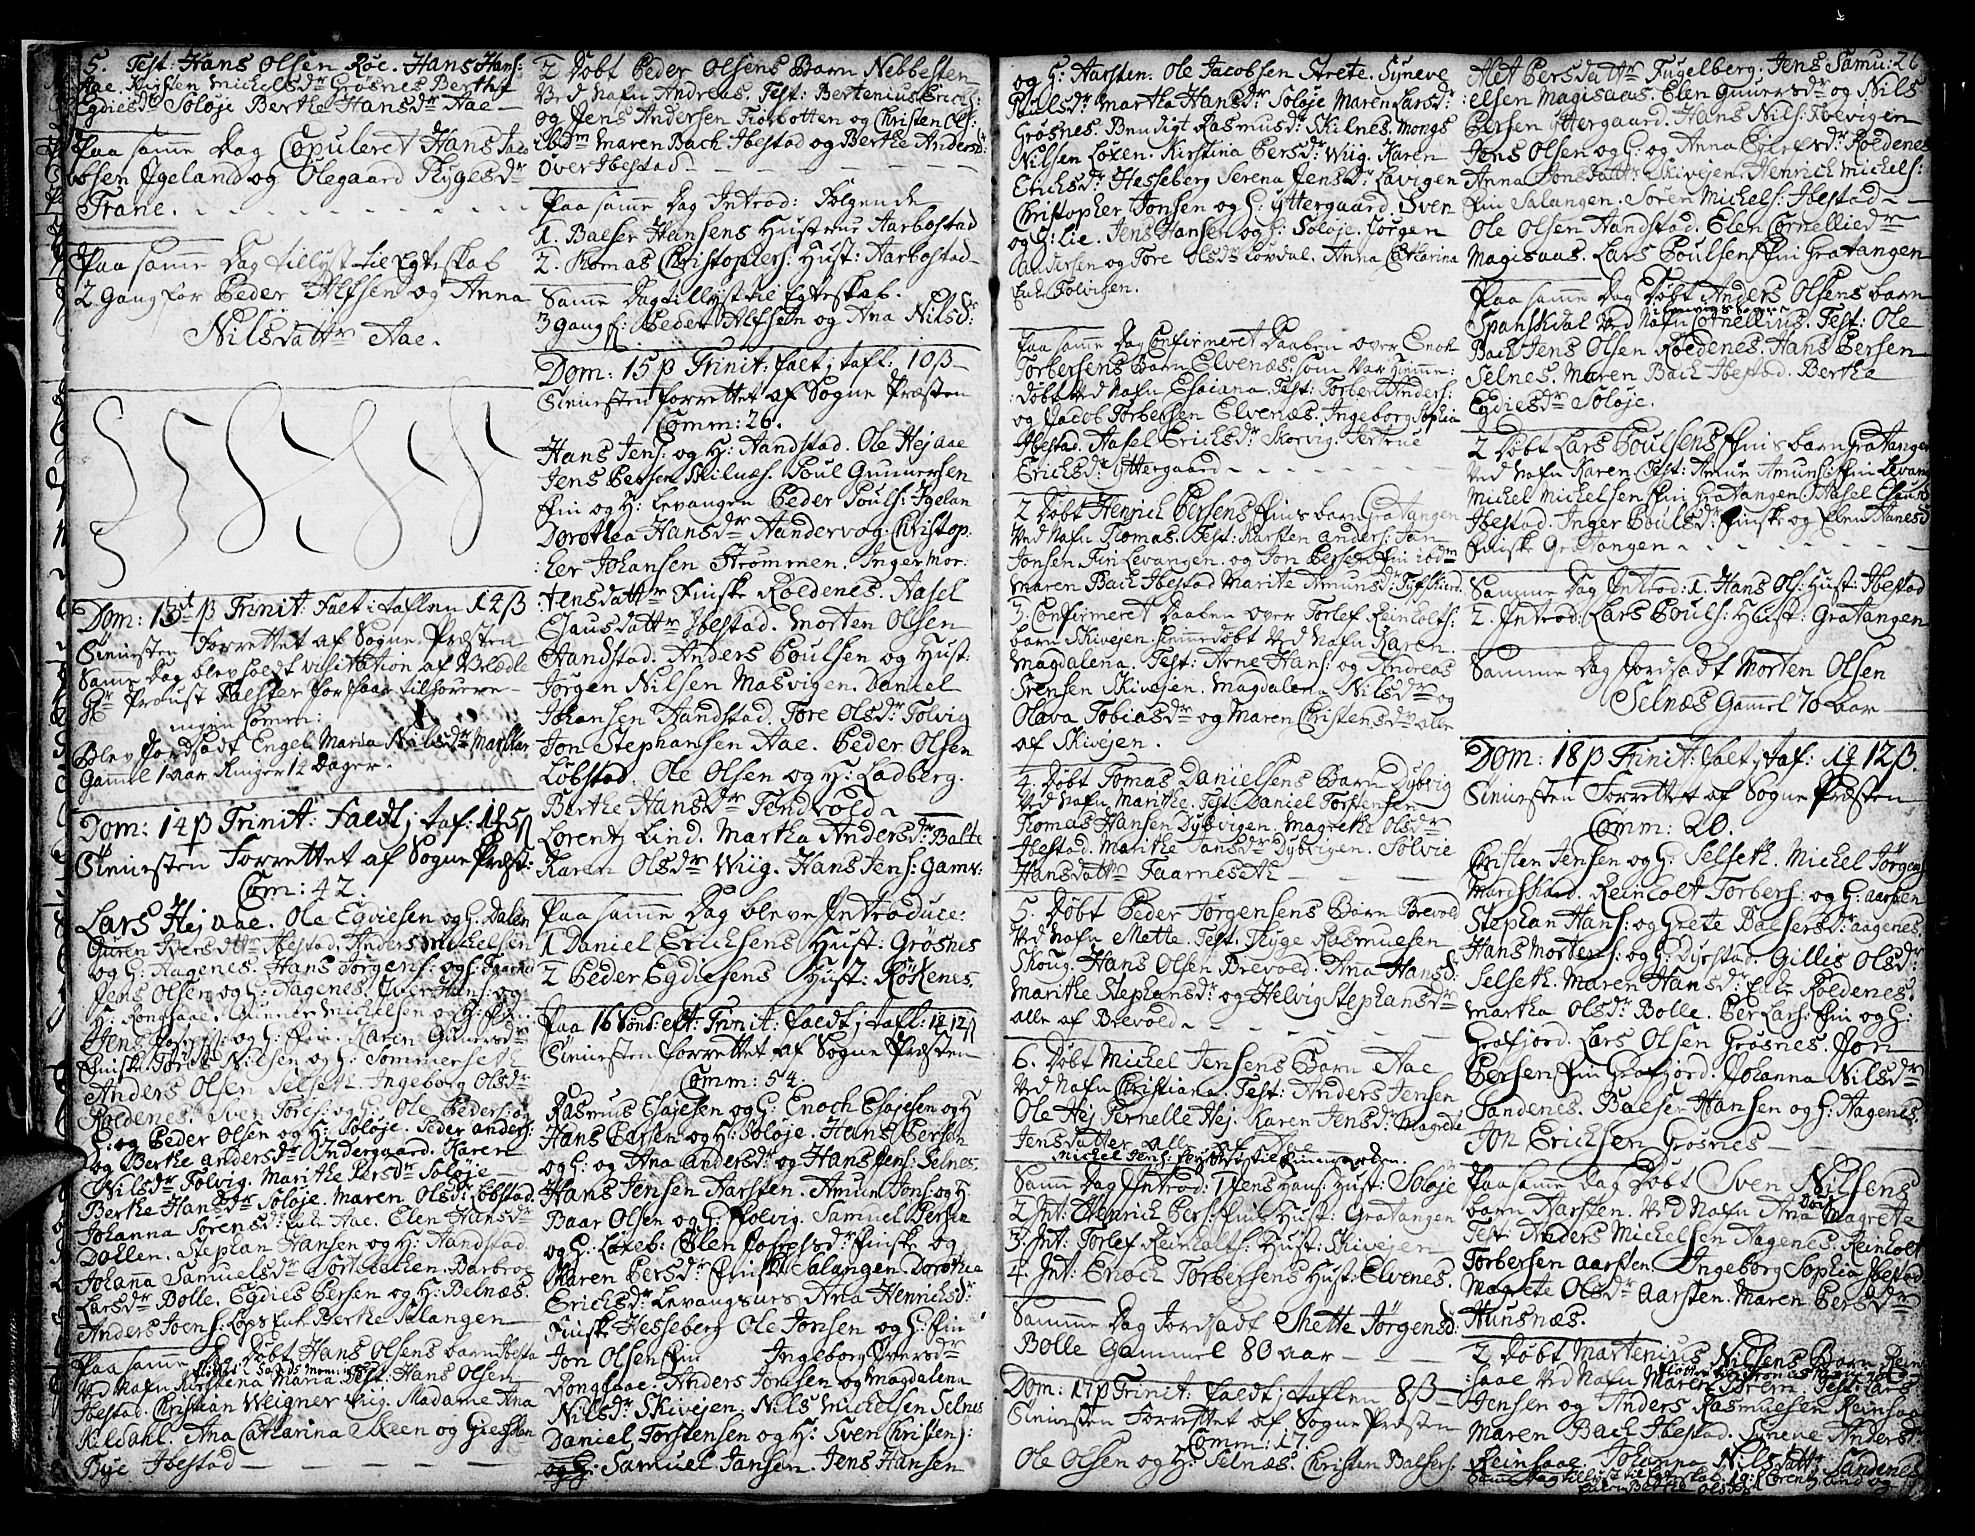 5. Test: Hans Olsen Röe. Hans Hans:
Aae. Kirsten Michelsdr Grösnes Berthe
Egdiesdr Soløje Berthe Hansdr Aae
Paa samme Dag Copuleret Hans Jaco
bsen Igeland og Olegaard Thygesdr
Trane.
Paa samme Dag tillyst til Egteskab
2 Gang for Peder Alfsen og Anna
Nilsdattr Aae.
Dom: 13 p Trinit: falt i taflen 14 ß
Tienisten Forrettet af Sogne Præsten
Same Dag blev holdt visitation af
Hr Provst Falster
ingen Comm:
Blev Jordsadt Engel Maria Nilsdr
Gammel 1 aar Ringer 12 Dager.
Dom: 14 p Trinit: Faldt i taf:
Tienisten Forrettet af Sogne Præst:
Com: 42.
Lars Hej Aae. Ole Egdiesen og H: Dalen
Guren Iversdattr Ibestad. Anders Michelsen
og H: Aagenes. Hans Jörgens: og H:
Jens Olsen og H: Aagenes. Iver Hans: og
H: Rongsaae. Gunner Michelsen og H: Fin.
og H: Fin. Karen Gunersdr
Finske Töres Nilsen og H: Sommerseth
Anders Olsen Selseth. Ingeborg Olsdr
Roldenes. Sven Töres: og H: Ole Peders: og
H: og Peder Olsen og H: Soløje. Peder anders:
og Berthe andersdr Indergaard. Karen
Nilsdr Folvig. Marithe Persdr Soløje
Berthe Hansdr Soløje. Maren Olsdr Löbstad
Johanna Sörensdr Aae. Elen Hansdr
Dallen. Stephan Hansen og H: Handstad
Johana Samuelsdr Barbroe
Larsdr Bolle. Egdies Persen og H: Selnæs.
Anders Joens: Berthe Salangen
Paa samme Dag Döbt Hans Olsens barn Ibesta
Ved Nafn Kirstena Maria Test: Hans Olsen
Ibestad. Christian Weigner Madame Ana
Kildahl. Ana Catharina Skeen og
Bye Ibestad
2 Döbt Peder Olsens Barn Nebbesten
Ved Nafn Andreas. Test: Bertenius Erichs:
og Jens Andersen Fiorbotten og Christen Ols:
ibidm Maren Bach Ibestad og Berthe Andersd:
Over Ibestad
Paa samme Dag Introd: Følgende
1. Balser Hansens Hustrue Aarbostad
2. Thomas Christophers: Hust: Aarbostad
Samme Dag tillyst til Egteskab.
3 gang f: Peder Alfsen og Ana Nilsd:
Dom: 15 p Trinit: falt i tafl: 10 ß
Tienisten forrettet af Sogne Præsten
Comm: 26.
Hans Jens: og H: Handstad. Ole Hej aae
Jens Persen Skilnæs. Poul Gunnersen
Fin og H: Levangen Peder Pouls: Igelan
Dorothea Hansdr Handervog. Christop:
:her Johansen Strømmen. Inger Mor:
:tensdattr Finske Roldenes. Aasel
Esausdattr Ibestad. Morten Olsen
Handstad. Anders Poulsen og Hust:
Jörgen Nilsen Masvigen. Daniel
Johansen Handstad. Tore Olsdr Folvig
Jon Stephansen Aae. Peder Olsen
Löbstad. Ole Olsen og H: Ladberg.
Berthe Hansdr Tendvold
Lorentz Lind. Martha Andersdr Balte
Karen Olsdr Wiig. Hans Jens: Gamv:
Paa samme Dag bleve Introduce:
1 Daniel Erichsens Hust: Grösnes
2 Peder Egdiesens Hust: Rökenes.
Paa 16 Sönd: eft: Trinit: faldt i tafl: 12 ß
Tienisten forrettet af Sogne Præsten
Comm: 54.
Rasmus Esajesen og H: Enoch Esajesen og H
Hans Persen og H: Soløje. Hans Persen
og H: og Ana andersdr og Hans Jens: Selnes.
Hans Jensen Aarsten. Amun Jons: og H:
Baar Olsen og H: Folvig. Samuel Persen
og H: Löxeb: Elen Josephsdr Finske og
Maren Persdr Finske Salangen. Dorothea
Erichsdr Levangsnes Ana Henrichsdr
Finske Hesseberg Ole Jonsen og H: Fin
Jon Olsen Fin Ingeborg Iversdr
Rongsaae. Anders Jonsen og Magdalena
Nilsdr Skivejen. Nils Michelsen Selnes
Daniel Torstensen og H: Sven Christens:
og H: Samuel Jansen. Jens Hansen
og H: Aarsten. Ole Jacobsen Strete. Syneve
Poulsdr Martha Hansdr Soløje Maren Larsdr
Grösnes. Bendigt Rasmusdr Skilnes. Mongs
Nilsen Löxen. Kirstina Persdr Wiig. Karen
Erichsdr Hesseberg Serena Jensdr Lavigen
Christopher Jonsen og H: Yttergaard. Sven
og H: Lie. Jens Hansen og H: Soløje. Jörgen
Andersen og Tore Olsdr Lovdal. Anna Catharina
Folvigen.
Paa samme Dag Confirmeret Daaben over Enoch
Torbersens Barn Elvenæs, som var Hiemme:
:döbt Ved Nafn Esaiana. Test: Torber Anders:
og Jacob Torbersen Elvenæs. Ingeborg Sophia
Ibestad. Aasel Erichsdr Skorvig. Gertrue
Erichsdr Yttergaard
2 Döbt Henrich Persens Fins barn Gratangen
Ved Nafn Thomas. Test: Karsten anders: Jan
Jonsen Fin Levangen. og Jon Persen Fin ibdm
Maren Bach Ibestad Marithe Amunsdr
3. Confirmeret Daaben over Torlef Reinholts:
barn Skivejen. hiemmedöbt Ved Nafn Karen
Magdalena. Test: Arne Hans: og Andreas
Srensen Skivejen. Magdalena Nilsdr og
Olava Tobiasdr og Maren Christensdr alle
af Skivejen.
4. Döbt Tomas Danielsens Barn Dybvig
Ved Nafn Marithe. Test Daniel Torstensen
Thomas Hansen Dybvigen. Magrethe Olsdr
Ibestad. Marithe Jansdr Dybvigen. Sølvie
Hansdattr Faarneseth
5. Döbt Peder Jörgensens Barn Brevold
Ved Nafn Mette. Test. Thyge Rasmusen
Skoug. Hans Olsen Brevold. Anna Hansd:
Marithe Stephansdr og Helvig Stephansdr
alle af Brevold
6. Döbt Michel Jensens Barn Aae
Ved Nafn Christiana. Test: Anders Jensen
Ole Hej Pernelle Hej. Karen Jensdr Magrete
Jensdatter alle af Aae
Michel Jens:
Samme Dag Introd: 1 Jens Hans: Hust: Soløje
2 Int: Henrich Pers: Fins Hust: Gratangen
3. Int: Torlef Reinholts: Hust: Skivejen
4. Int: Enoch Torbersens Hust: Elvenes.
Samme Dag Jordsadt Mette Jörgensd:
Bolle Gammel 80 aar
Dom: 17 p Trinit: faldt i taflen 8 ß
Tienisten Forrettet af Sogne Præsten
Comm: 17.
Ole Olsen og H: Selnæs. Christen Balsers:
26
Alet Persdattr Fugelberg. Jens Samu:
:elsen Magisaas. Elen Gunersdr og Nils
Persen Yttergaard. Hans Nils: Roevigen
Jens Olsen og H: og Anna Ejlefsdr Roldenes
Anna Jonsdattr Skivejen. Henrich Michels:
Fin Salangen. Sören Michels: Ibestad
Ole Olsen Handstad. Elen Cornelliedr
Magisaas. Lars Poulsen Fin Gratangen
Paa samme Dag Döbt Anders Olsens barn
Spanskdal Ved Nafn Cornellius. Test: Ole
Bach Jens Olsen Roldenes. Hans Persen
Selnes. Maren Bach Ibestad. Bertha
Egdiesdr Soløje.
2 Döbt Lars Poulsens Fins barn Gratangen
Ved Nafn Karen Test: Amun Amuns: Fin Levang
Michel Michelsen Fin Gratangen Aasel Esaus
Ibestad. Inger Poulsdr Finske og Elen Hansd
Finske Gratangen
Samme Dag Introd: 1. Hans Ols: Hust: Ibestad
2. Introd: Lars Pouls: Hust: Gratangen
Samme Dag Jordsadt Morten Olsen
Selnæs Gamel 70 aar
Dom: 18 p Trinit: falt i taf: 12 ß.
Tienisten Forrettet af Sogne Præsten
Comm: 20.
Christen Jensen og H: Selseth. Michel Jörgens
Reinholt Torbers: og H: aarsten
Stephan Hans: og Grete Balsersdr aagenes
Hans Mortens: og H: Dyrstad. Gillis Olsdr
Selseth. Maren Hansdr Elle Roldenes.
Martha Olsdr Bolle. Per Lars: Fin og H:
Grafjord. Lars Olsen Grösnes. Jon
Persen Fin Grafjord. Johanna Nilsdr
Sandenes. Balser Hansen og H: Aagenes.
Jon Erichsen Grosnes
Paa samme Dag Döbt Sven Nilsens
barn Aarsten. Ved Nafn Ana Magrete
Test: Anders Michelsen Aagenes. Reinholt
Torbersen aarsten. Ingeborg Sophia Ibestad
Magrete Olsdr Aarsten. Maren Persdr
Hunsnæs.
2 Döbt Martenius Nilsens Barn Rein
:saae Ved Nafn Maren Test: Lars
Jensen og Anders Rasmusen Reinsaa
Maren Bach Ibestad. Syneve Andersdr
Reinsaae. Johanna Nilsdattr Sandenes
Samme Dag tillyst til Egteskab. Lorentz Lind og